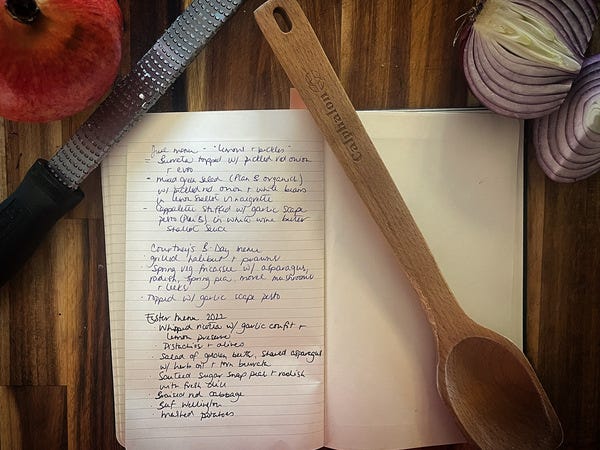 June menu - "lemons + pickles"
- Burrata topped w/ pickled red onion
+ evoo
- mixed green salad (Plan B organic)
w/ pickled red onion + white beans
in lemon shallot vinaigrette
- Cappelletti stuffed w/ garlic scape
pesto (Plan B) in white wine butter
shallot sauce
Courtney's B-Day menu
grilled halibut + prawns
- Spring veg fricassee w/ asparagus,
radish, spring pea, morel mushrooms
+ leeks
- topped w/ garlic scape pesto
Easter menu 2022
Whipped ricotta w/ garlic confit +
lemon preserve
Pistachios + olives
· Salad of golden beets, shaved asparagus
w/ herb oil + torn burrata
· Sauteed sugar snap peas + radish
with fresh dill
· Braised red cabbage
· Beef Wellington
· mashed potatoes
calphalon